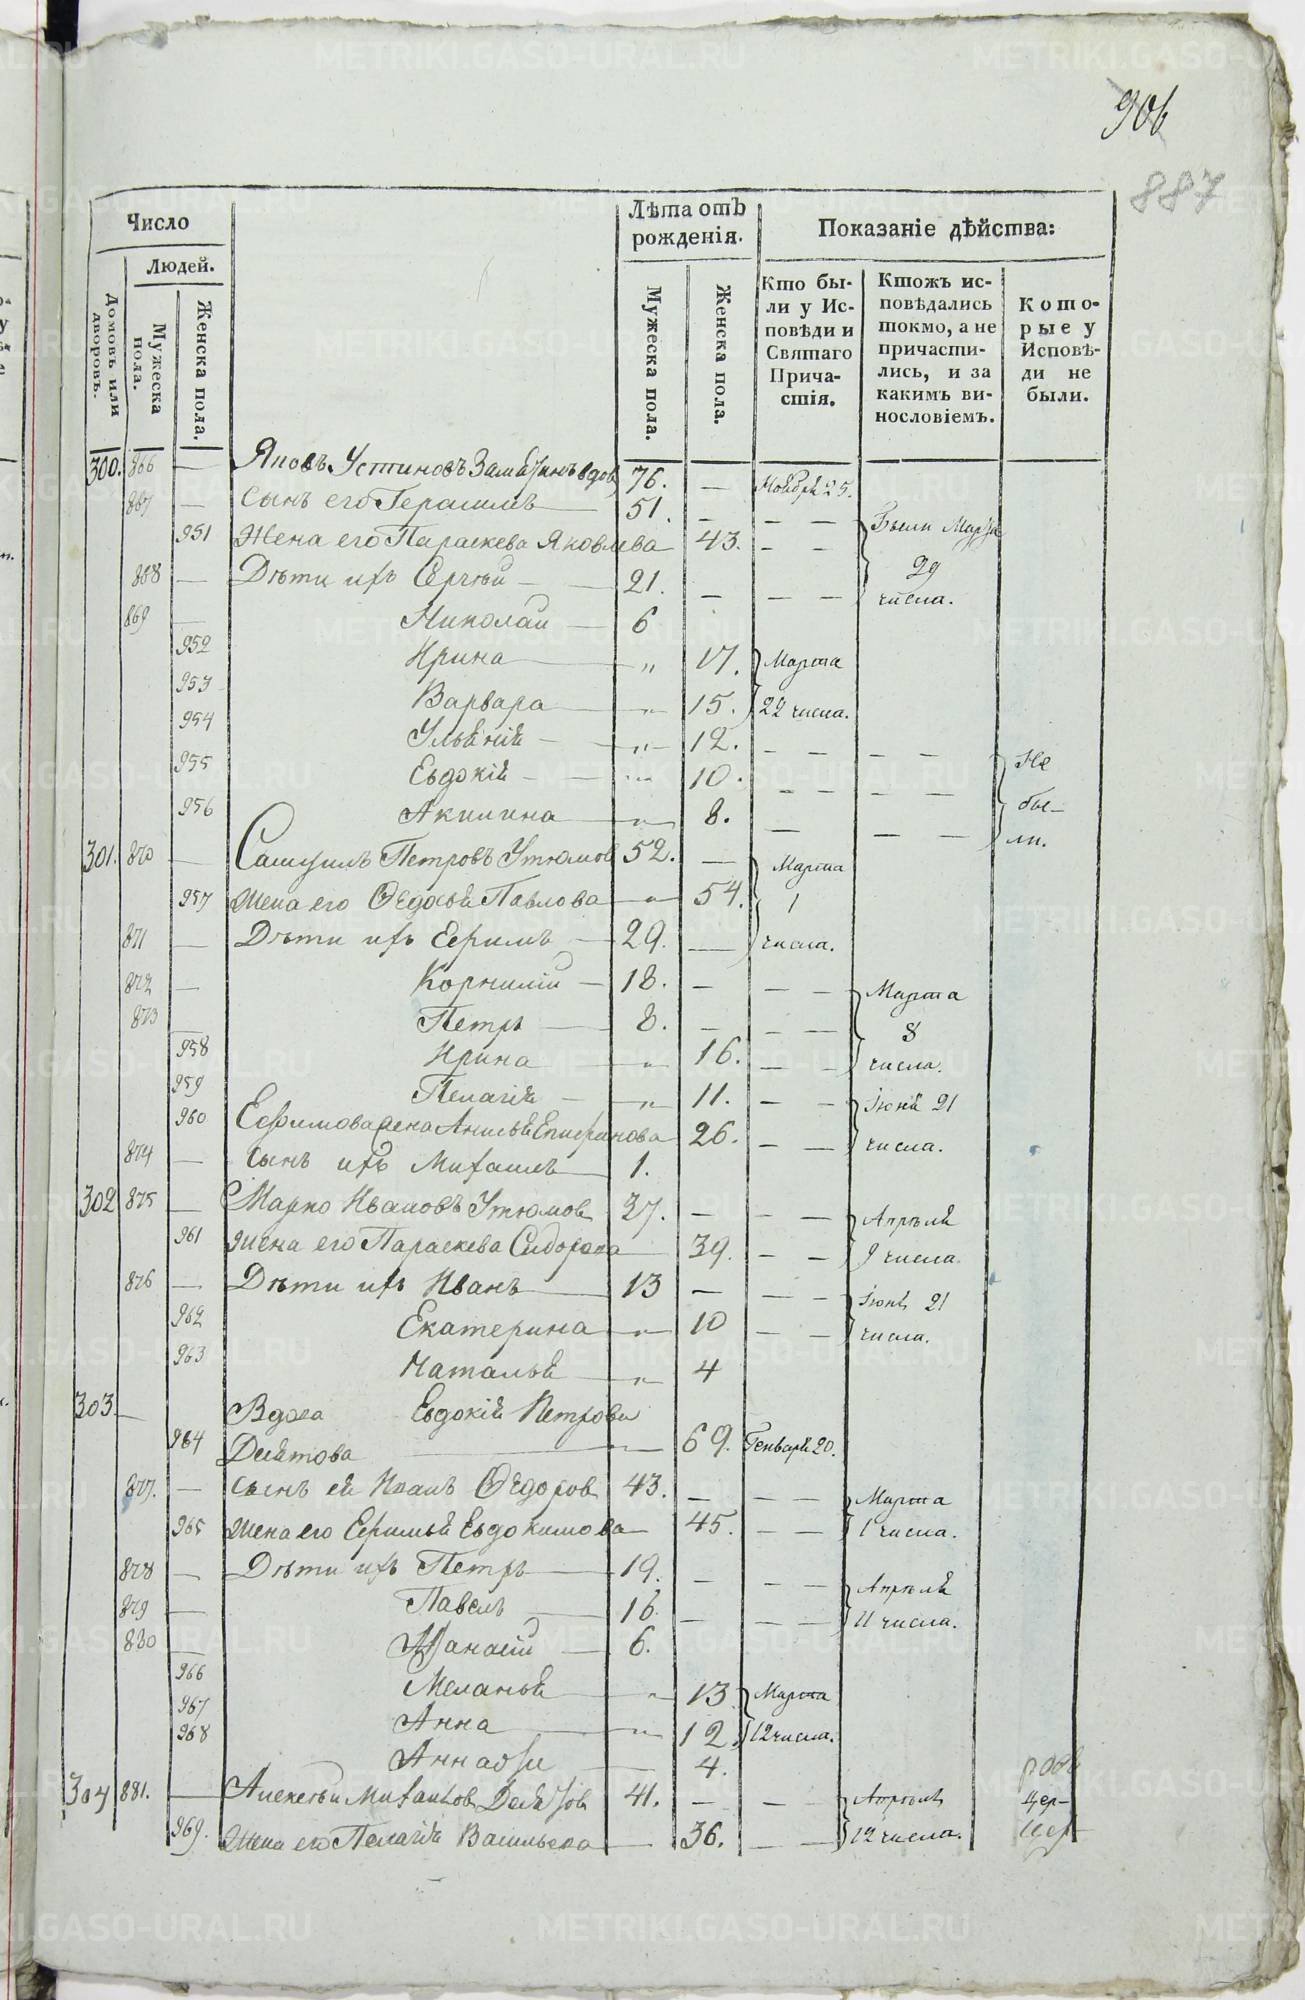 906
887
Число
Лѣта отъ рожденія.
Показаніе дѣйства:
Людей.
Домовъ или дворовъ.
Мужеска пола.
Женска пола.
Мужеска пола.
Женска пола.
Кто были у Исповѣди и Святаго Причастія.
Ктожъ исповѣдались токмо, а не причастились, и за какимъ винословіемъ.
Которые у Исповѣди не были.
300. 866 — Яковъ Устиновъ вдов 76. — Ноября 25.
867 — Сынъ его Герасимъ 51. — — — Были Марта
951 Жена его Параскева Яковлева 43. — — 29
868 — Дѣти ихъ Сергѣй — 21. — — — числа.
869 — Николай — 6
952 Ирина — „ 17. Марта
953 Варвара — „ 15. 22 числа.
954 Ульянія — „ 12. — — — —
955 Евдокія — „ 10. — — — — Не
956 Акилина — „ 8. — — — бы-
ли.
301. 870 — Самуилъ Петровъ Утюмов 52. — Марта
957 Жена его Ѳедосья Павлова — „ 54. 1
871 — Дѣти ихъ Ефимъ — 29. — числа.
872 — Корнилій — 18. — — — Марта
873 — Петръ — 8. — — — 8
958 Ирина — „ 16. — — числа.
959 Пелагія — „ 11. — — Іюня 21
960 Ефимова жена Анисья Епифанова 26. — — числа.
874 — Сынъ ихъ Михаилъ — 1.
302 875 — Марко Ивановъ Утюмов 37. — — — Апрѣля
961 Жена его Параскева Сидорова — 39. — — 9 числа.
876 — Дѣти ихъ Иванъ — 13 — — — Іюня 21
962 Екатерина — „ 10 — — числа.
963 Наталья — „ 4
303. — Вдова Евдокія Петрова
964 Девятова — 69. Генваря 20.
877. — Сынъ ея Иванъ Ѳедоров 43. — — — Марта
965 Жена его Ефимья Евдокимова — 45. — — 1 числа.
878 — Дѣти ихъ Петръ — 19. — — — Апрѣля
879 — Павелъ — 16 — — — 11 числа.
880 — Афанасій — 6.
966 Меланья — „ 13 Марта
967 Анна — „ 12 12 числа.
968 Анна — 4.
304 881. — Алексѣй Михайлов Девятов 41. — — — Апрѣля
969. Жена его Пелагія Васильева — 36. — — 12 числа.